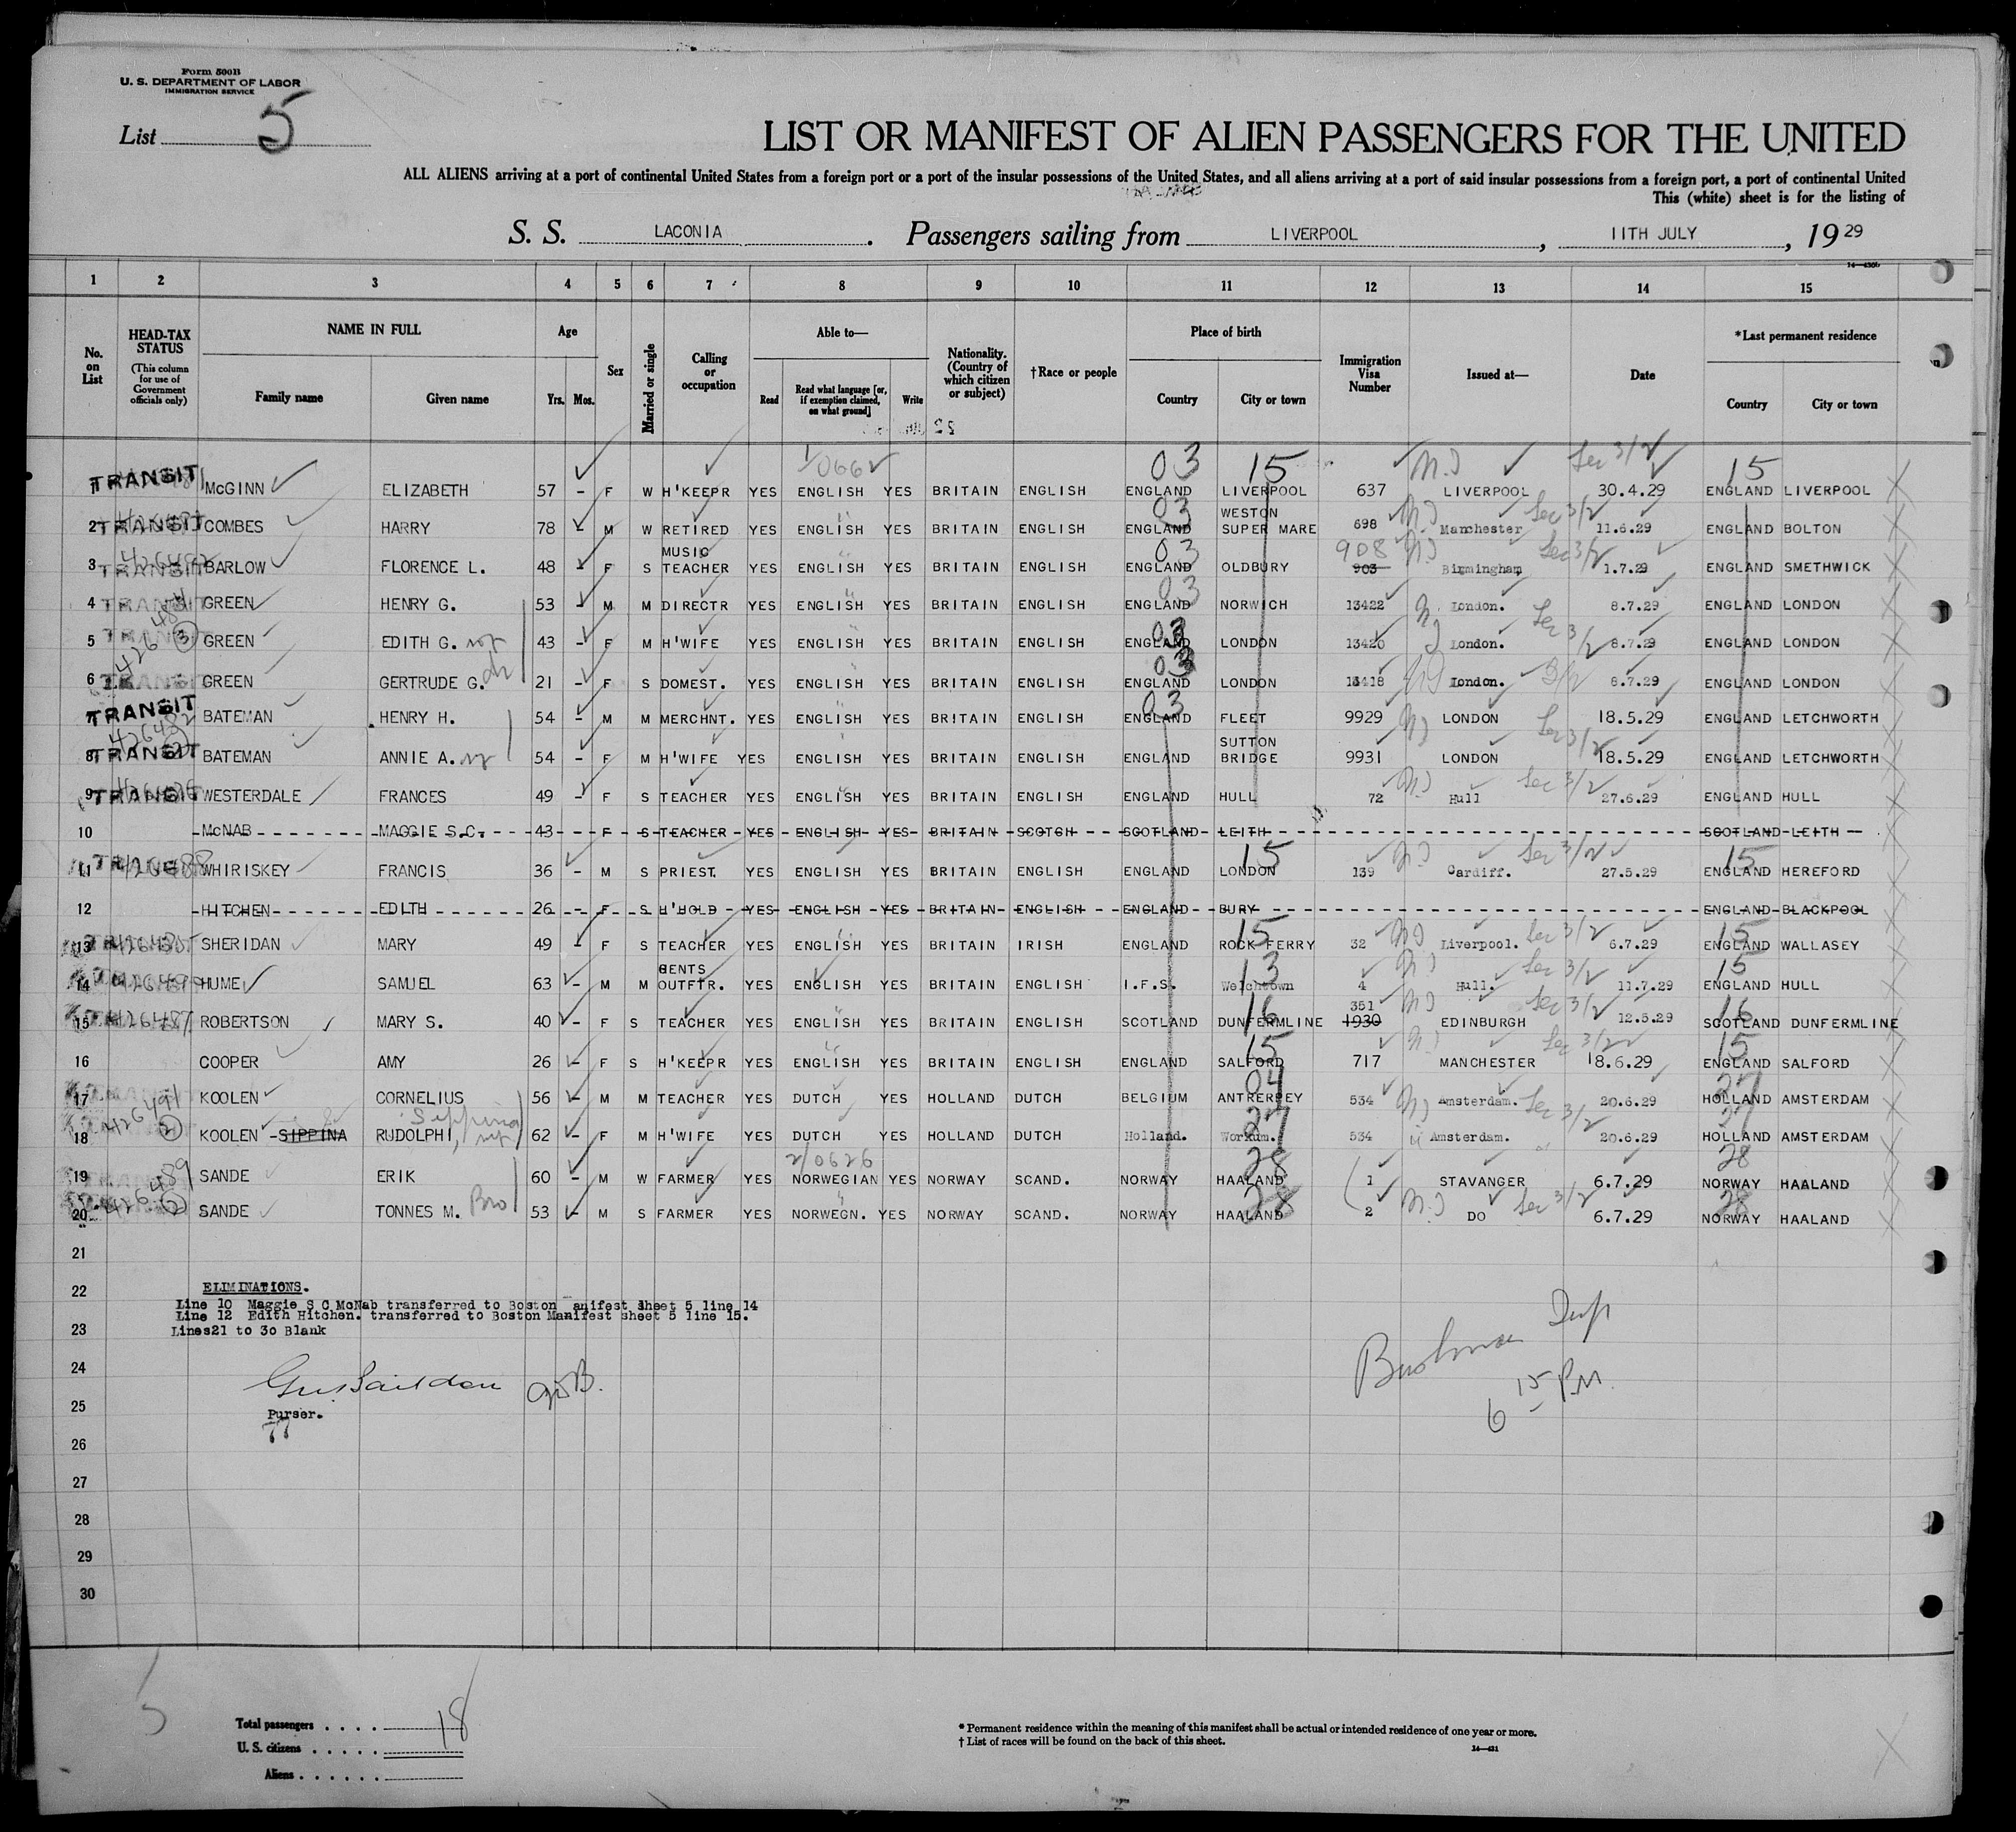 Form 500B
U. S. DEPARTMENT OF LABOR
IMMIGRATION SERVICE
List 5
LIST OR MANIFEST OF ALIEN PASSENGERS FOR THE UNITED
ALL ALIENS arriving at a port of continental United States from a foreign port or a port of the insular possessions of the United States, and all aliens arriving at a port of said insular possessions from a foreign port, a port of continental United
This (white) sheet is for the listing of
S. S. LACONIA. Passengers sailing from LIVERPOOL, 11TH JULY, 1929
1 2 3 4 5 6 7 8 9 10 11 12 13 14 15
No. on List
HEAD-TAX STATUS (This column for use of Government officials only)
NAME IN FULL Family name Given name
Age Yrs. Mos.
Sex
Married or single
Calling or occupation
Able to— Read Read what language [or, if exemption claimed, on what ground] Write
Nationality. (Country of which citizen or subject)
†Race or people
Place of birth Country City or town
Immigration Visa Number
Issued at—
Date
*Last permanent residence Country City or town
TRANSIT McGINN ELIZABETH 57 - F W H'KEEPR YES ENGLISH YES BRITAIN ENGLISH ENGLAND LIVERPOOL 637 LIVERPOOL 30.4.29 ENGLAND LIVERPOOL
2 TRANSIT COMBES HARRY 78 - M W RETIRED YES ENGLISH YES BRITAIN ENGLISH ENGLAND WESTON SUPER MARE 698 Manchester 11.6.29 ENGLAND BOLTON
3 TRANSIT BARLOW FLORENCE L. 48 - F S MUSIC TEACHER YES ENGLISH YES BRITAIN ENGLISH ENGLAND OLDBURY 908 903 Birmingham 1.7.29 ENGLAND SMETHWICK
4 TRANSIT GREEN HENRY G. 53 - M M DIRECTR YES ENGLISH YES BRITAIN ENGLISH ENGLAND NORWICH 13422 London. 8.7.29 ENGLAND LONDON
5 TRANSIT GREEN EDITH G. 43 - F M H'WIFE YES ENGLISH YES BRITAIN ENGLISH ENGLAND LONDON 13420 London. 8.7.29 ENGLAND LONDON
6 TRANSIT GREEN GERTRUDE G. 21 - F S DOMEST. YES ENGLISH YES BRITAIN ENGLISH ENGLAND LONDON 13418 London. 8.7.29 ENGLAND LONDON
7 TRANSIT BATEMAN HENRY H. 54 - M M MERCHNT. YES ENGLISH YES BRITAIN ENGLISH ENGLAND FLEET 9929 LONDON 18.5.29 ENGLAND LETCHWORTH
8 TRANSIT BATEMAN ANNIE A. 54 - F M H'WIFE YES ENGLISH YES BRITAIN ENGLISH ENGLAND SUTTON BRIDGE 9931 LONDON 18.5.29 ENGLAND LETCHWORTH
9 TRANSIT WESTERDALE FRANCES 49 - F S TEACHER YES ENGLISH YES BRITAIN ENGLISH ENGLAND HULL 72 Hull 27.6.29 ENGLAND HULL
10 McNAB MAGGIE S.C. 43 F S TEACHER YES ENGLISH YES BRITAIN SCOTCH SCOTLAND LEITH SCOTLAND LEITH
11 WHIRISKEY FRANCIS 36 - M S PRIEST. YES ENGLISH YES BRITAIN ENGLISH ENGLAND LONDON 139 Cardiff. 27.5.29 ENGLAND HEREFORD
12 HITCHEN EDITH 26 F S H'HOLD YES ENGLISH YES BRITAIN ENGLISH ENGLAND BURY ENGLAND BLACKPOOL
13 SHERIDAN MARY 49 - F S TEACHER YES ENGLISH YES BRITAIN IRISH ENGLAND ROCK FERRY 32 Liverpool. 6.7.29 ENGLAND WALLASEY
14 HUME SAMUEL 63 - M M GENTS OUTFTR. YES ENGLISH YES BRITAIN ENGLISH I.F.S. Welchtown 4 Hull. 11.7.29 ENGLAND HULL
15 ROBERTSON MARY S. 40 - F S TEACHER YES ENGLISH YES BRITAIN ENGLISH SCOTLAND DUNFERMLINE 351 1930 EDINBURGH 12.5.29 SCOTLAND DUNFERMLINE
16 COOPER AMY 26 - F S H'KEEPR YES ENGLISH YES BRITAIN ENGLISH ENGLAND SALFORD 717 MANCHESTER 18.6.29 ENGLAND SALFORD
17 KOOLEN CORNELIUS 56 - M M TEACHER YES DUTCH YES HOLLAND DUTCH BELGIUM 534 Amsterdam. 20.6.29 HOLLAND AMSTERDAM
18 KOOLEN -SIPPINA RUDOLPHI, Sippina 62 - F M H'WIFE YES DUTCH YES HOLLAND DUTCH Holland. Workum. 534 Amsterdam. 20.6.29 HOLLAND AMSTERDAM
19 SANDE ERIK 60 - M W FARMER YES NORWEGIAN YES NORWAY SCAND. NORWAY HAALAND 1 STAVANGER 6.7.29 NORWAY HAALAND
20 SANDE TONNES M. Bro 53 - M S FARMER YES NORWEGN. YES NORWAY SCAND. NORWAY HAALAND 2 DO 6.7.29 NORWAY HAALAND
21
22 ELIMINATIONS.
Line 10 Maggie S C McNab transferred to Boston anifest sheet 5 line 14
Line 12 Edith Hitchen. transferred to Boston Manifest sheet 5 line 15.
23 Lines21 to 30 Blank
24
25 Purser.
77
6 15 P.M.
26
27
28
29
30
Total passengers . . . . 18
U. S. citizens . . . . .
Aliens . . . . . .
* Permanent residence within the meaning of this manifest shall be actual or intended residence of one year or more.
† List of races will be found on the back of this sheet.
14—421